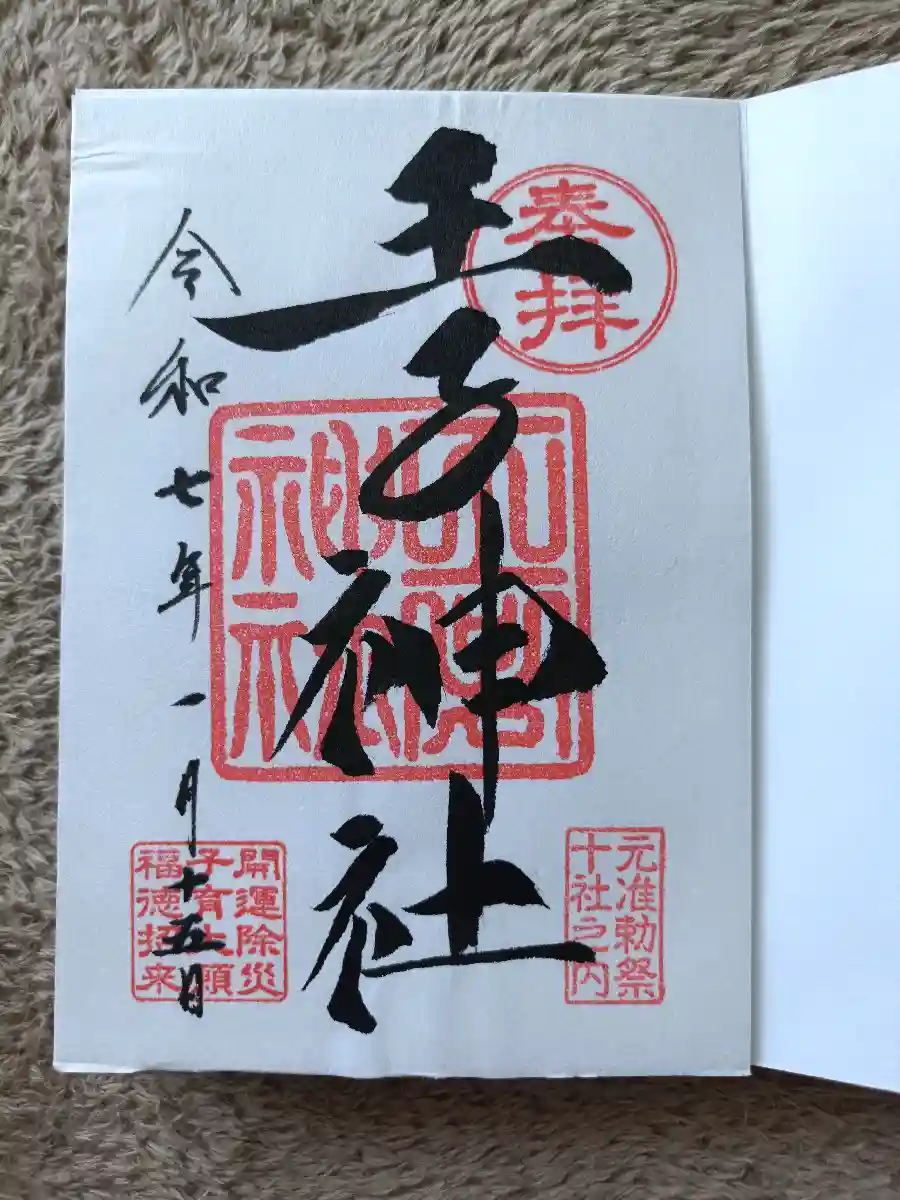 奉拝
元准勅祭
十社之内
王子神社
開運除災
子育大願
福徳招来
令和七年一月十五日